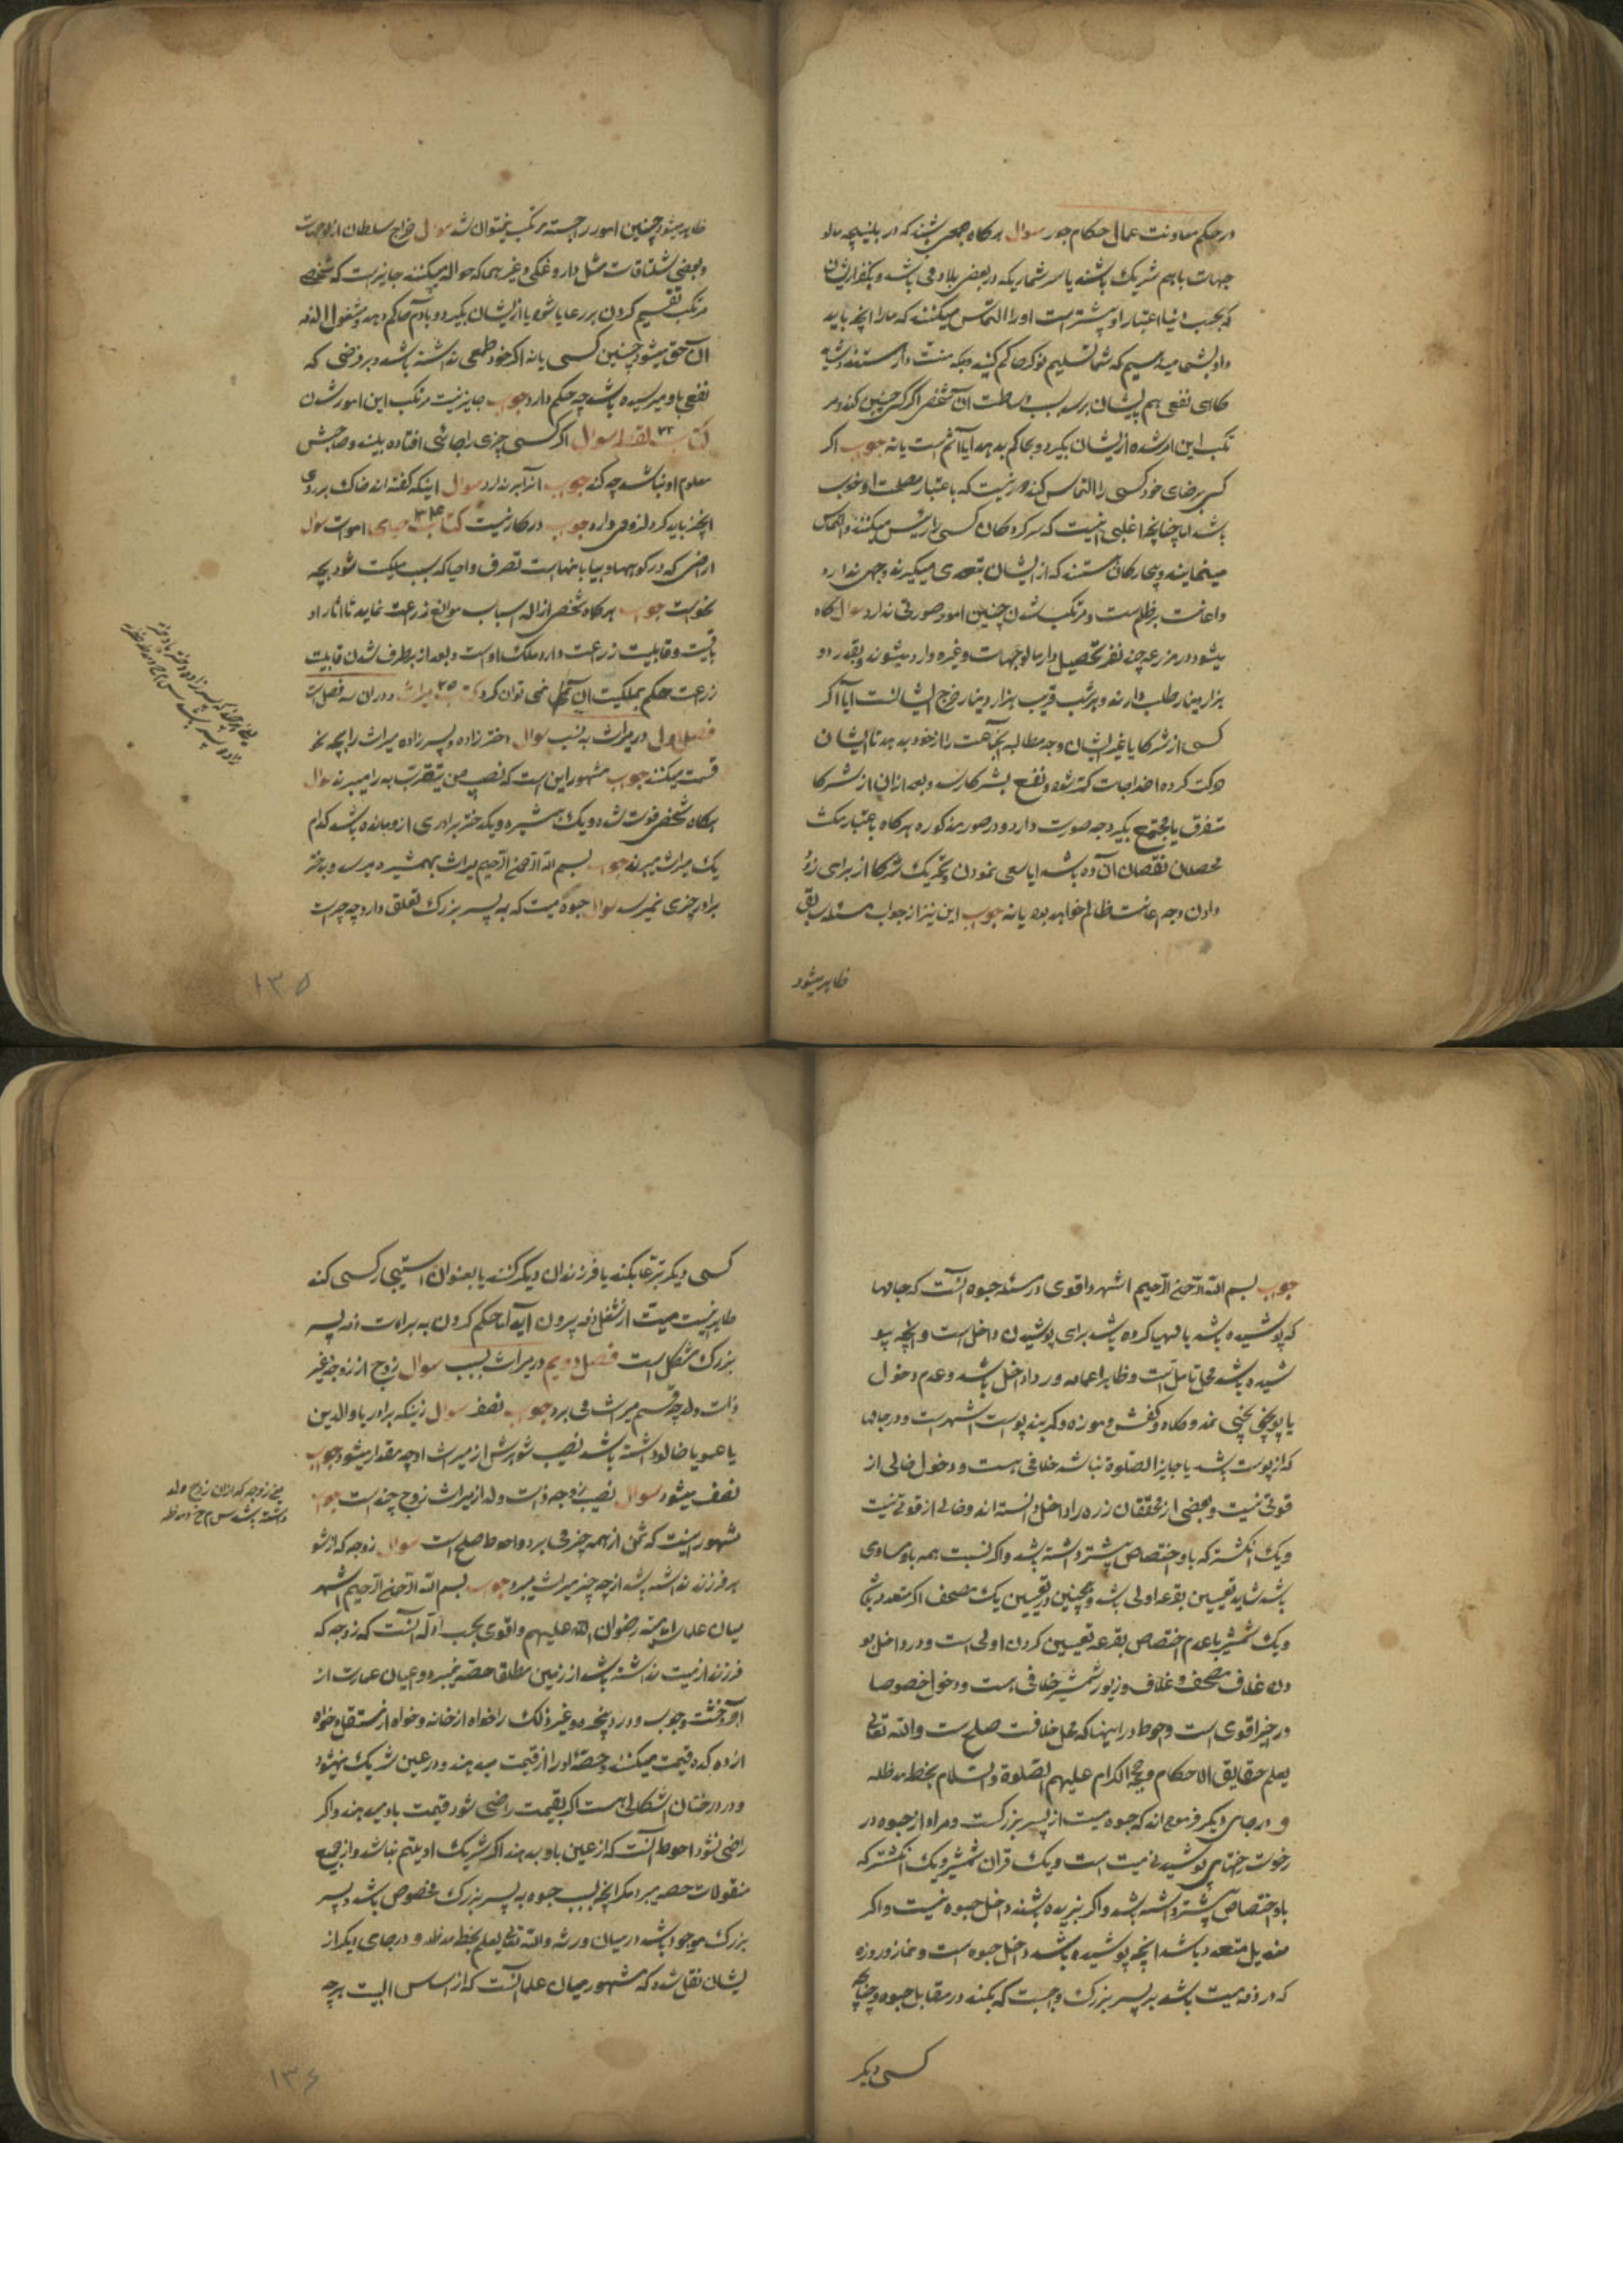 در حکم معاونت عمال حکام جور سوال هرکاه جمعی باشند که در بلنیچه مالو
جهات باهم شریک باشند یا سرشماریکه در بعضی بلاد می باشد و یکنفر ایشان
که بحسب دنیا اعتبار او بیشتر است او را التماس میکنند که ما را انچه باید
داد بشما میدهیم که شما تسلیم نوکر حاکم کنید و بکه منت دار هستند و شاید
کاهی نفعی هم بایشان برسد بسبب وساطت ان شخص اکر کسی چنین کند و مر
تکب این امر شده از ایشان بکیرد و بحاکم بدهد ایا آثم است یا نه جوب اکر
کسی برضای خود کسی را التماس کند دور نیست که باعتبار مصلحت او خوب
باشد اما چنانچه اغلبی اینست که سرکردکان کسی را رئیس میکنند و التماس
مینمایند و بیچارکان هستند که از ایشان بتعدی میکیرند وجهی ندارد
و اعانت بر ظلم است و مرتکب شدن چنین امور صورتی ندارد سوال کاه
میشود در مزرعه چند نفر تحصیلدار مالوجهات و غیره وارد میشوند و بقدر دو
هزار دینار طلب دارند و هر شب قریب هزار دینار خرج ایشانست ایا اکر
کسی از شرکا یا غیر ایشان وجه مطالبه آنجماعت را از خود بدهد تا ایشان
حرکت کرده اخراجات کمتر شود و نفع بشرکا رسد و بعد از ان از شرکا
متفرق یا مجتمع بکیرد چه صورت دارد و در صور مذکوره هرکاه باعتبار مکث
محصلان نقصان آن ده باشد ایا سعی نمودن و تحریک شرکا از برای زود
دادن وجه اعانت ظالم خواهد بود یا نه جوب این نیز از جواب مسئله سابق
ظاهر میشود
ظاهر میشود چنین امور را جسته مرتکب نمیتوان شد سوال خراج سلطان از مالوجهات
و بعضی شلتاقات مثل داروغکی و غیر هما که حواله میکنند جایز است که شخصی
مرتکب تقسیم کردن بر رعایا شود یا از ایشان بکیرد و بادم حاکم دهد و مشغول الذمه
ان حق میشود چنین کسی یا نه اکر خود طمعی نداشته باشد و بر فرضی که
نفعی باو میرسیده باشد چه حکم دارد جوب جایز نیست مرتکب این امور شدن
کتاب ۲۳ لقطه سوال اکر کسی چیزی را جائی افتاده بیند و صاحبش
معلوم او نباشد چه کند جوب انرا برندارد سوال اینکه کفته اند خاک بر روی
انچیز باید کرد لزومی دارد جوب در کار نیست کتاب ۲۴ احیای اموات سوال
اراضی که در کوهها و بیابانهاست تصرف و احیا که سبب ملکیت شود بچه
نحوست جوب هرکاه شخصی ازاله اسباب موانع زرعت نماید تا اثار او
باقیست و قابلیت زرعت دارد ملک اوست و بعد از برطرف شدن قابلیت
زرعت حکم بملکیت ان نمی توان کرد کتاب ۲۵ میراث و دران سه فصل است
فصل اول در میراث به نسب سوال دخترزاده و پسرزاده میراث را بچه نحو
قسمت میکنند جوب مشهور این است که نصیب من یتقرب به را میبرند سوال
هرکاه شخصی فوت شده و یک همشیره و یکدختر برادری از و مانده باشد کدام
یک میراث میبرند جوب بسم الله الرحمن الرحیم میراث بهمشیره میرسد و بدختر
برادر چیزی نمیرسد سوال حبوهٔ میت که به پسر بزرک تعلق دارد چه چیز است
۱۳۵
جوب بسم الله الرحمن الرحیم اشهر و اقوی در مسئله حبوه انست که جامها
که پوشیده باشد یا مهیا کرده باشد برای پوشیدن داخل است و انچه نپو
شیده باشد محل تامل است و ظاهرا عمامه و ردا داخل باشد و عدم دخول
یاپوچی نخی نمد و کلاه و کفش و موزه و کمربند پوست اشهر است و در جامها
که از پوست باشد یا جایز الصلوة نباشد خلافی هست و دخول خالی از
قوتی نیست و بعضی از محققان زره را داخل دانسته اند و خالی از قوتی نیست
و یک انکشتر که باو اختصاص بیشتر داشته باشد و اکر نسبت همه باو مساوی
باشد شاید تعیین بقرعه اولی باشد و همچنین در تعیین یک مصحف اکر متعدد باشد
و یک شمشیر با عدم اختصاص بقرعه تعیین کردن اولی است و در داخل بو
دن غلاف مصحف و غلاف و زیور شمشیر خلافی هست و دخول خصوصا
در اخیر اقوی است و احوط در اینها که محل خلافت صلح است والله تعالی
یعلم حقایق الاحکام و حججه الکرام علیهم الصلوة والسلام بخط مدظله
و در جای دیکر فرموده اند که حبوه میت از پسر بزرکست و مراد از حبوه در
رخوت رختهای پوشیدنی میت است و یک قران شمشیر و یک انکشتر که
باو اختصاص بیشتر داشته باشد و اکر نبریده باشند داخل حبوه نیست و اکر
مندیل متعدد باشد انچه پوشیده باشد داخل حبوه است و نماز و روزه
که در ذمه میت باشد بر پسر بزرک واجبست که بکند در مقابل حبوه و چنانچه
کسی دیکر
کسی دیکر تبرعا بکند یا فرزندان دیکر کنند یا بعنوان استیجار کسی کند
ظاهر نیست میت از شغل ذمه بیرون آید اما حکم کردن به براءت ذمه پسر
بزرک مشکل است فصل دویم در میراث بسبب سوال زوج از زوجه غیر
ذات ولد چه قسم میراث می برد جوب نصف سوال زنیکه برادر یا والدین
یا عمو یا خالو داشته باشد نصیب شوهرش از میراث او چه مقدار میشود جوب
نصف میشود سوال نصیب زوجه ذات ولد از میراث زوج چند است جوب
مشهور اینست که ثمن از همه چیز می برد و احوط صلح است سوال زوجه که از شو
هر فرزند نداشته باشد از چه چیز میراث میبرد جوب بسم الله الرحمن الرحیم اشهر
میان علماء امامیه رضوان الله علیهم و اقوی بحسب ادله انست که زوجه که
فرزند از میت نداشته باشد از زمین مطلقا حصه نمیبرد و اعیان عمارت از
آجر و خشت و چوب و در و پنجره و غیر ذلک را خواه از خانه و خواه از مستغل و خواه
از دهکده قیمت میکنند و حصهٔ او را از قیمت میدهند و در عین شریک نمیشود
و در درختان اشکالی هست اکر بقیمت راضی شود قیمت باو میدهند و اکر
راضی نشود احوط انست که از عین باو بدهند اکر شریک او یتیم نباشد و از جمیع
منقولات حصه میبرد مکر انچه بسبب حبوه به پسر بزرک مخصوص باشد و پسر
بزرک موجود باشد در میان ورثه والله تعالی یعلم بخط مدظله و در جای دیکر از
یشان نقل شده که مشهور میان علما انست که از اساس البیت هرچه
یعنی زوجه که از ان زوج ولد
داشته باشد
۱۳۶